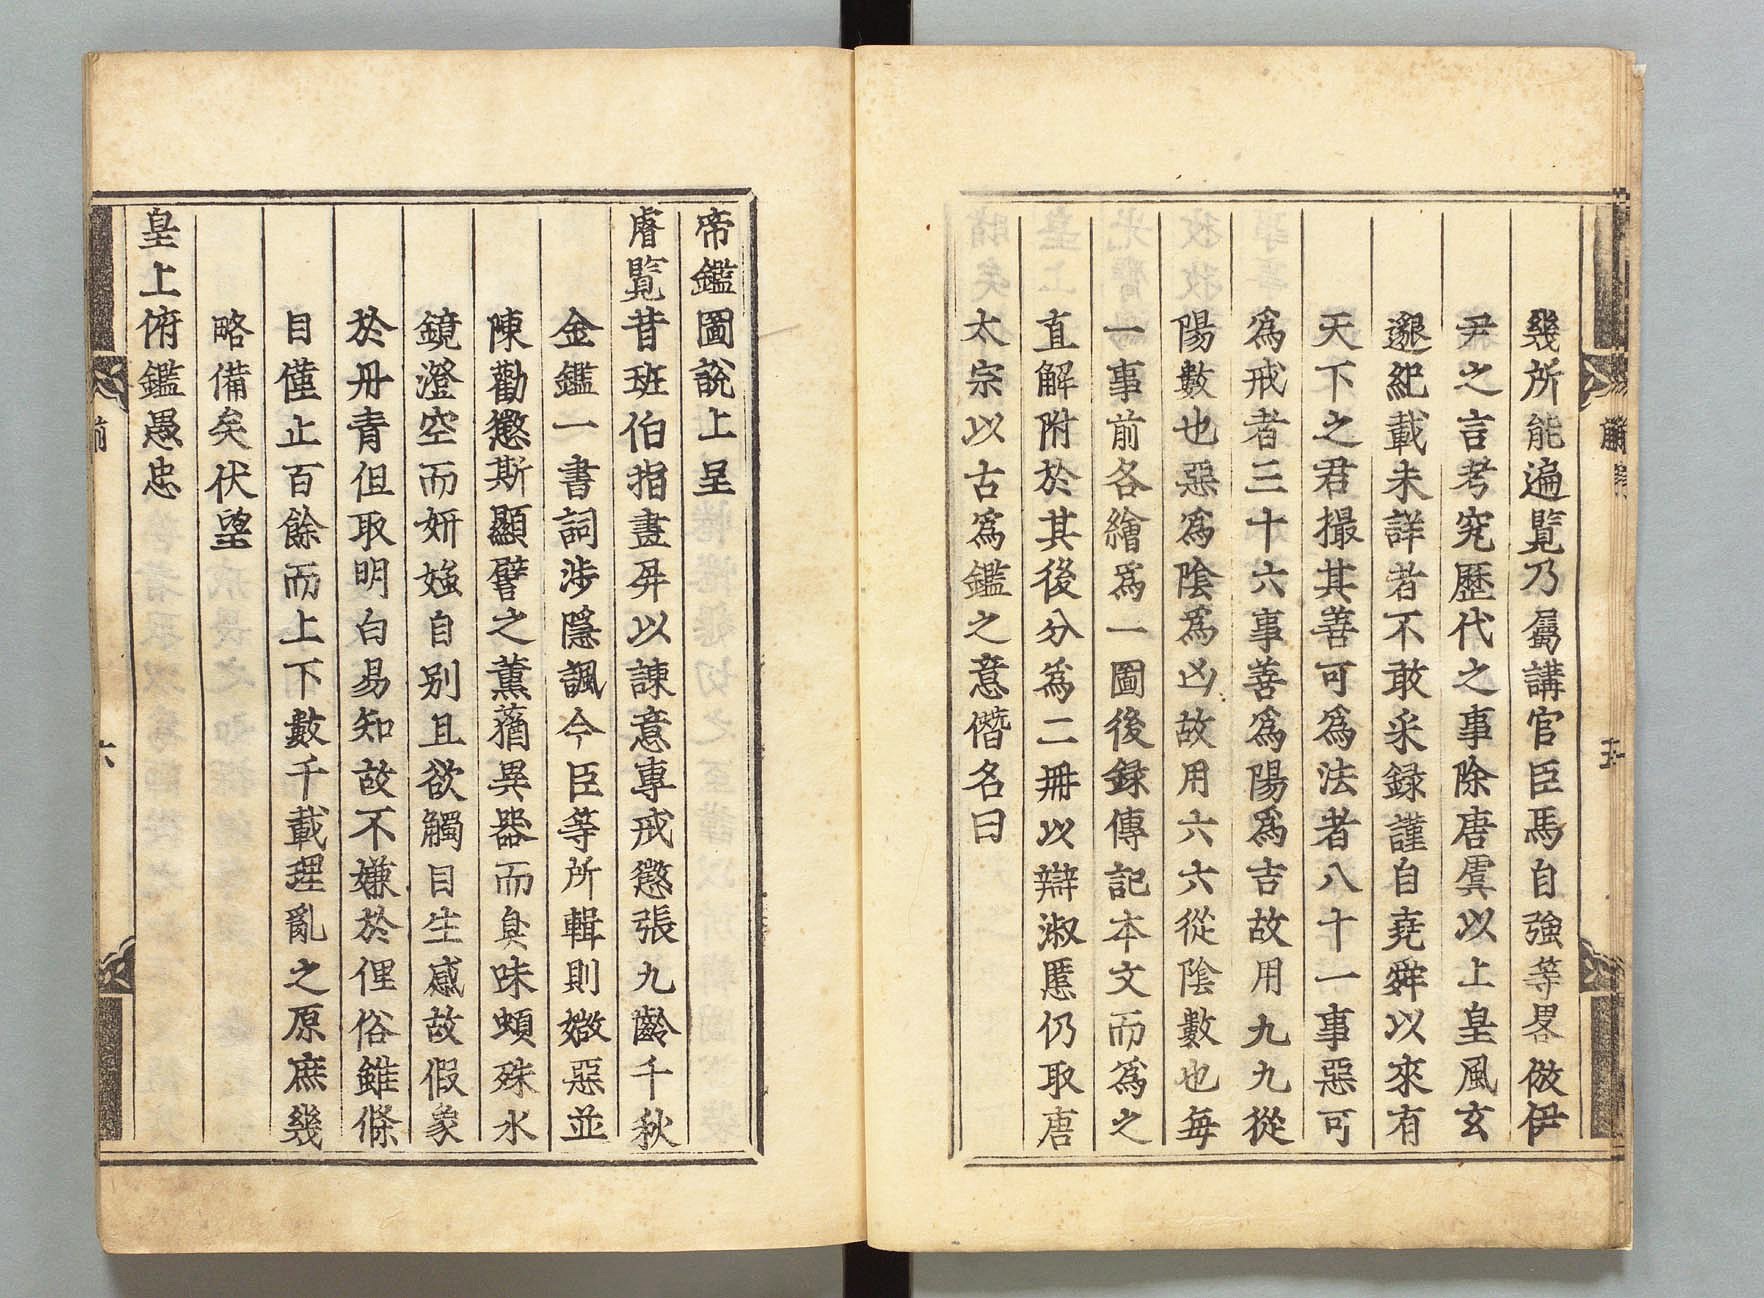 幾所能遍覧乃屬講官臣馬自強等畧倣伊
尹之言考究歷代之事除唐虞以上皇風玄
邈紀載未詳者不敢采録謹自堯舜以來有
天下之君撮其善可為法者八十一事惡可
為戒者三十六事善為陽為吉故用九九從
陽數也惡為陰為凶故用六六從陰數也每
一事前各繪為一圖後録傳記本文而為之
直解附於其後分為二冊以辯淑慝仍取唐
太宗以古為鑑之意僭名曰
帝鑑圖說上呈
睿覧昔班伯指畫屏以諫意專戒懲張九齡千秋
金鑑一書詞涉隱諷今臣等所輯則媺惡並
陳勸懲斯顯譬之薰蕕異器而臭味頓殊水
鏡澄空而妍媸自別且欲觸目生感故假象
於丹青但取明白易知故不嫌於俚俗雖條
目僅止百餘而上下數千載理亂之原庶幾
略備矣伏望
皇上俯鑑愚忠
前
六